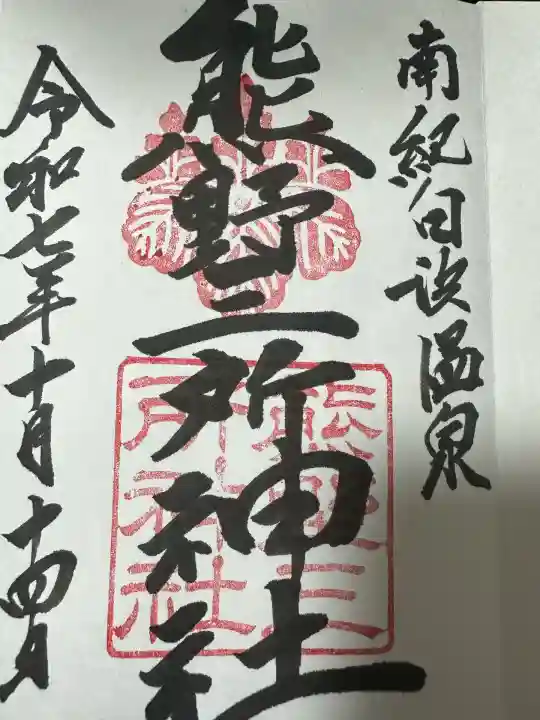 南紀白浜温泉
熊野三所神社
熊野三
所神社
令和七年十月十四日